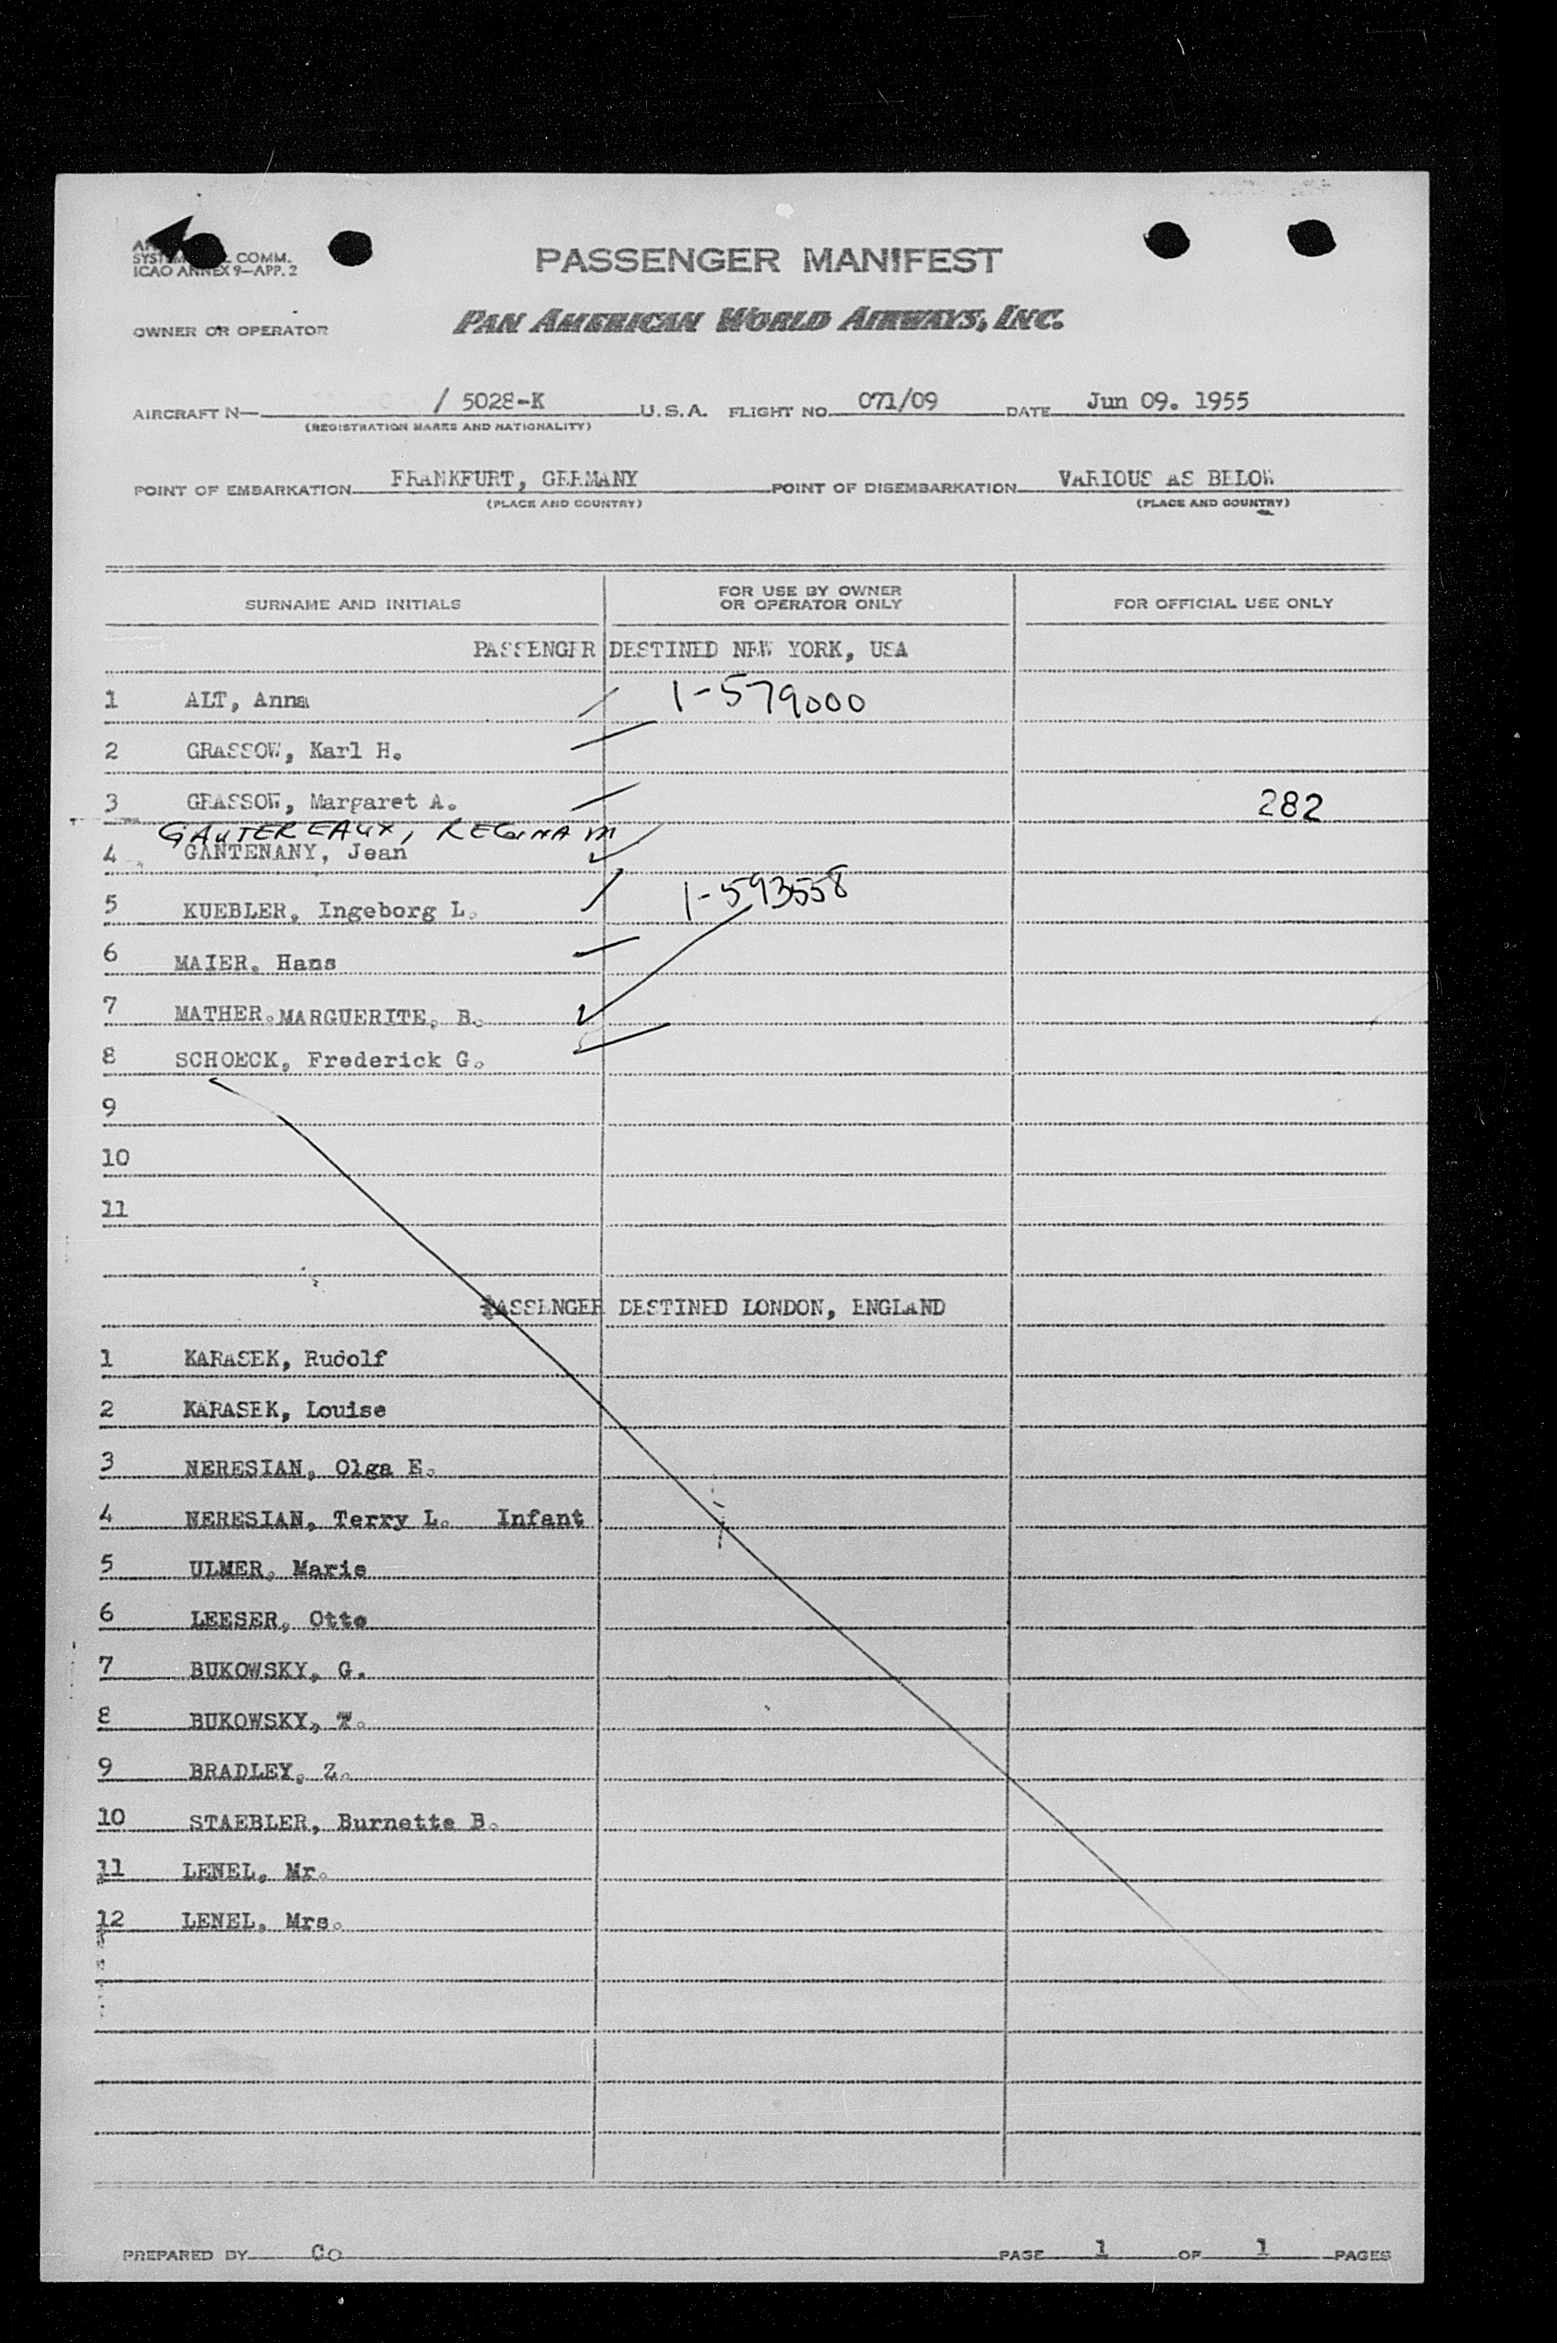 COMM.
ICAO ANNEX 9—APP. 2
PASSENGER MANIFEST
OWNER OR OPERATOR PAN AMERICAN WORLD AIRWAYS, INC.
AIRCRAFT N— / 5028-K U.S.A. FLIGHT NO. 071/09 DATE Jun 09. 1955
(REGISTRATION MARKS AND NATIONALITY)
POINT OF EMBARKATION FRANKFURT, GERMANY POINT OF DISEMBARKATION VARIOUS AS BELOW
(PLACE AND COUNTRY) (PLACE AND COUNTRY)
SURNAME AND INITIALS FOR USE BY OWNER OR OPERATOR ONLY FOR OFFICIAL USE ONLY
PASSENGER DESTINED NEW YORK, USA
1 ALT, Anna 1-579000
2 GRASSOW, Karl H.
3 GRASSOW, Margaret A. 282
GAUTEREAUX, REGINA M
4 GANTENANY, Jean
5 KUEBLER, Ingeborg L. 1-593558
6 MAIER. Hans
7 MATHER. MARGUERITE, B.
8 SCHOECK, Frederick G.
9
10
11
PASSENGER DESTINED LONDON, ENGLAND
1 KARASEK, Rudolf
2 KARASEK, Louise
3 NERESIAN, Olga E.
4 NERESIAN, Terry L. Infant
5 ULMER, Marie
6 LEESER, Otto
7 BUKOWSKY, G.
8 BUKOWSKY, T.
9 BRADLEY, Z.
10 STAEBLER, Burnette B.
11 LENEL, Mr.
12 LENEL, Mrs.
PREPARED BY Co PAGE 1 OF 1 PAGES